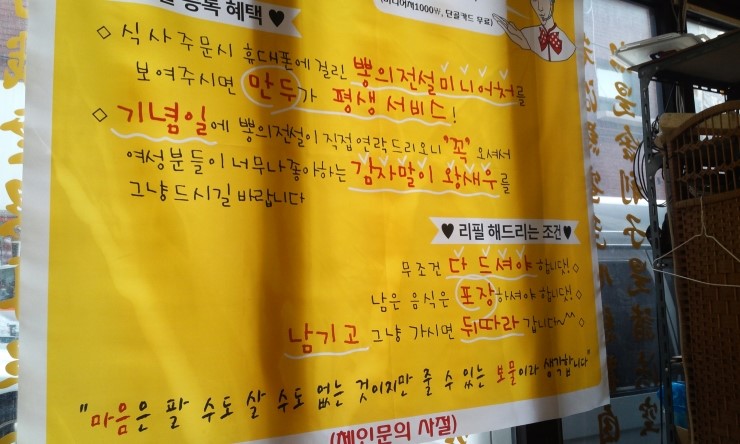 등록 혜택 ♥
(미니어처1000₩, 단골카드 무료)
◇ 식사주문시 휴대폰에 걸린 뽕의전설미니어처를
보여주시면 만두가 평생서비스!
◇ 기념일에 뽕의전설이 직접연락드리오니 "꼭" 오셔서
여성분들이 너무나 좋아하는 감자말이 왕새우를
그냥드시길 바랍니다
♥ 리필 해드리는 조건 ♥
무조건 다 드셔야 합니댯! ◇
남은 음식은 포장하셔야 합니댯! ◇
남기고 그냥 가시면 뒤따라 갑니다~^^ ◇
"마음은 팔 수도 살 수도 없는 것이지만 줄 수 있는 보물이라 생각합니다"
(체인문의 사절)